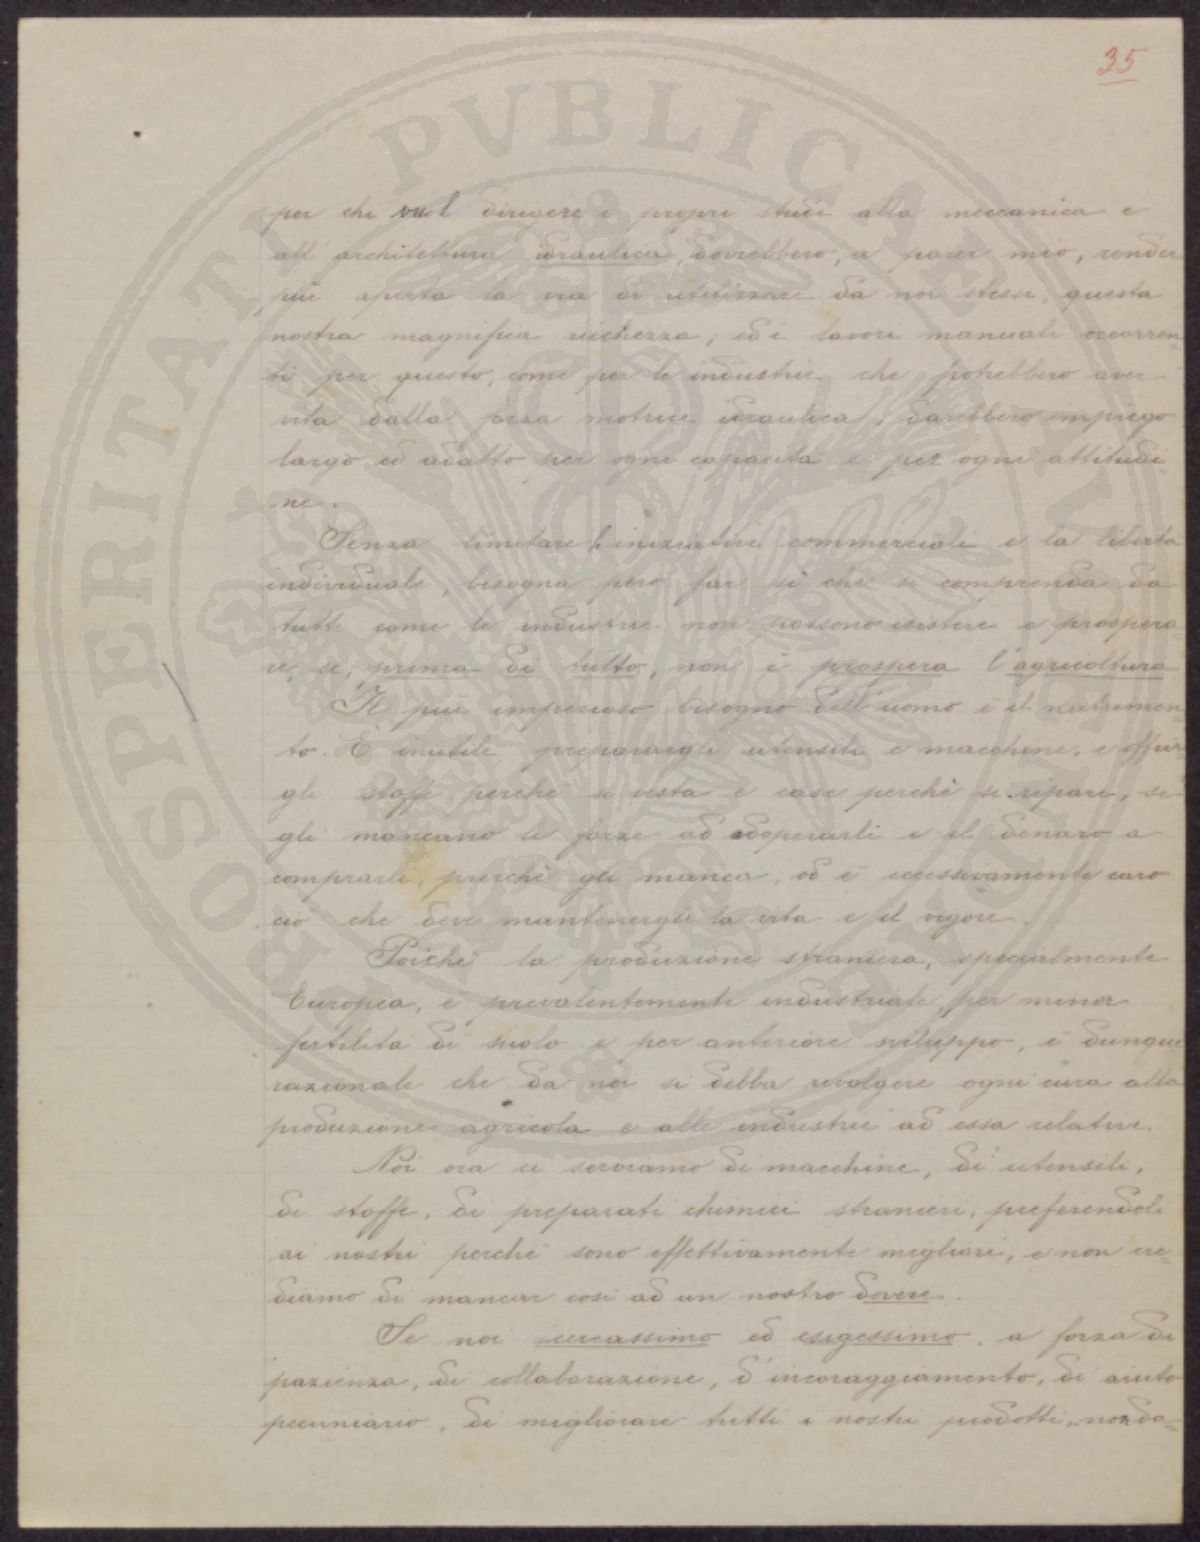 35
per chi vuol dirigere i propri studi alla meccanica e
all'architettura idraulica, dovrebbero, a parer mio, render
più aperta la via di utilizzare da noi stessi, questa
nostra magnifica ricchezza; ed i lavori manuali occorren=
ti per questo, come per le industrie che potrebbero aver
vita dalla forza motrice idraulica, darebbero impiego
largo ed adatto per ogni capacità e per ogni attitudi=
ne.
Senza limitare le iniziative commerciali e la libertà
individuale, bisogna però far sì che si comprenda da
tutti come le industrie non possono esistere e prospera=
re, se, prima di tutto, non è prospera l'agricoltura
Il più imperioso bisogno dell'uomo è il nutrimen=
to. È inutile preparargli utensili e macchine, e offrir
gli stoffe perchè si vesta e case perchè si ripari, se
gli mancano le forze ad adoperarli e il denaro a
comprarli, perchè gli manca, od è eccessivamente caro
ciò che deve mantenergli la vita e il vigore.
Poichè la produzione straniera, specialmente
Europea, è prevalentemente industriale, per minor
fertilità di suolo e per anteriore sviluppo, è dunque
razionale che da noi si debba rivolgere ogni cura alla
produzione agricola e alle industrie ad essa relative.
Noi ora ci serviamo di macchine, di utensili,
di stoffe, di preparati chimici stranieri, preferendoli
ai nostri perchè sono effettivamente migliori, e non cre=
diamo di mancar così ad un nostro dovere.
Se noi cercassimo ed esigessimo, a forza di
pazienza, di collaborazione, d'incoraggiamento, di aiuto
pecuniario, di migliorare tutti i nostri prodotti, non do=
PROSPERITATI PVBLICAE AVGENDAE